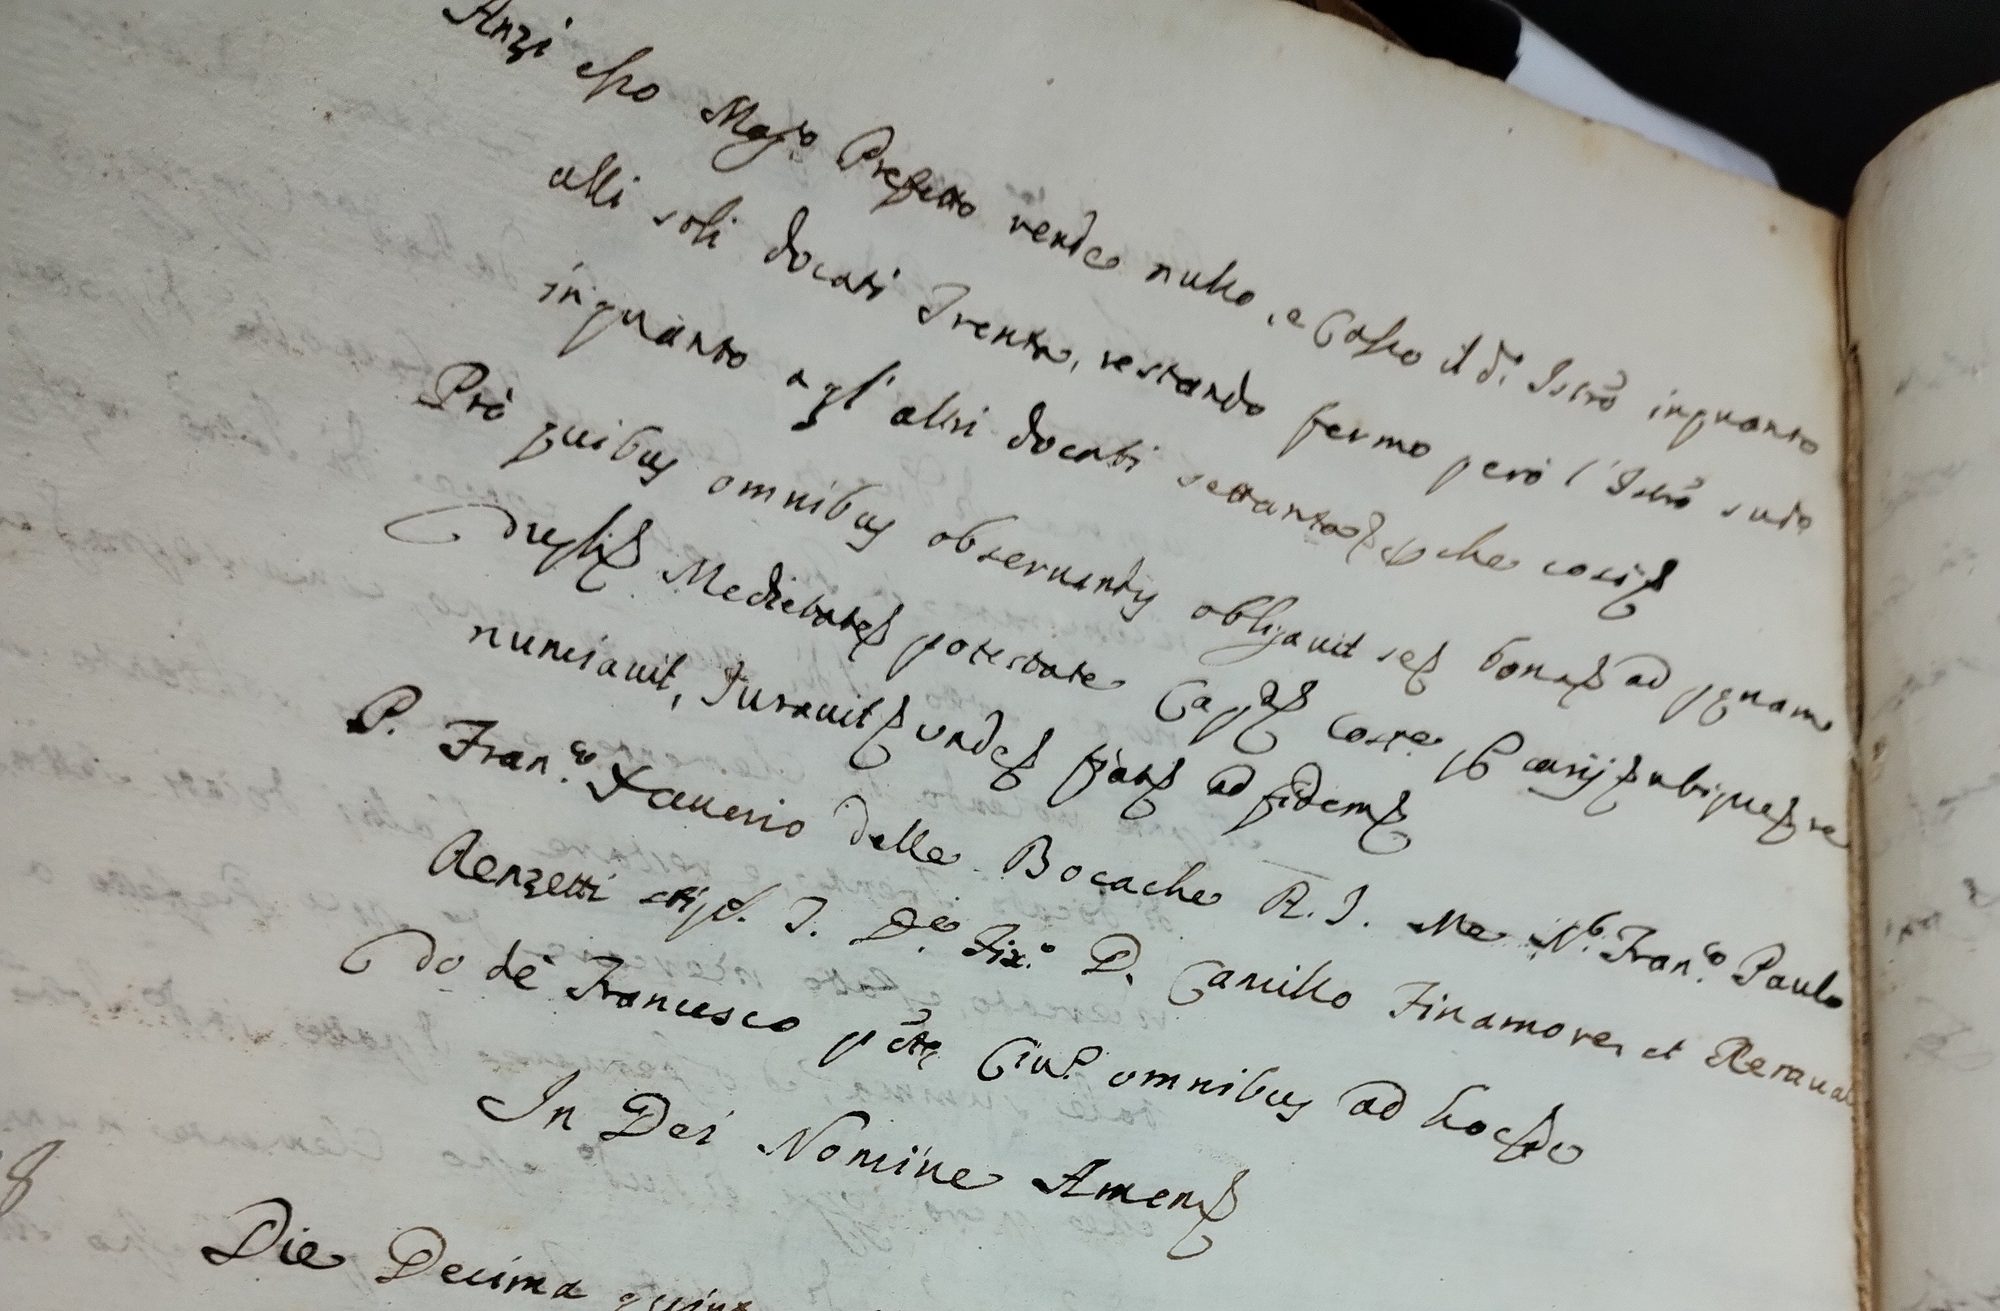 Anzi esso Mag.co Prefetto rende nullo, e Casso il d.o Istrõ inquanto
alli soli docati Trenta, restando fermo però l'Istrõ sudo
inquanto agl'altri docati settanta, perche cosi
Prò quibus omnibus observandis obligavit se, bona, ad penam
dupli, Medietate, potestate Cap. Const. precarij, ubique, re
nunciavit, Juravit, unde, fiat, ad fidem,
P. Fran.co Xaverio delle Bocache R. J. Me N.r Fran.co Paulo
Renzetti stip. T. D.r Fix.o D. Camillo Finamore, et Renaual
do de Francesco p̃te Civ. omnibus ad hoc
In Dei Nomine Amen
8
Die Decima quint